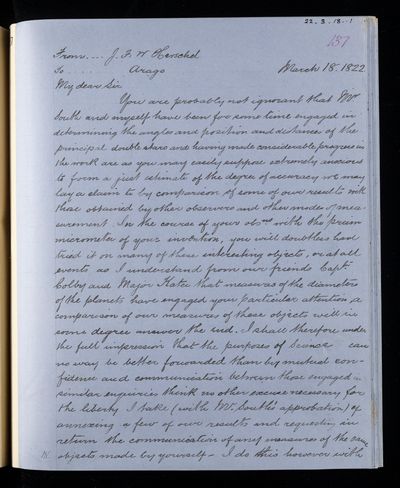 22.3.18.-1
137
From... J. F. W Herschel
To ........ Arago
March 18. 1822
My dear Sir
You are probably not ignorant that Mr
South and myself have been for some time engaged in
determining the angles and position and distances of the
principal double stars and having made considerable progress in
the work are as you may easily suppose extremely anxious
to form a just estimate of the degree of accuracy we may
lay a claim to by comparison of some of our results with
those obtained by other observers and other modes of mea-
surement. In the course of your obsns with the prism
micrometer of your invention, you will doubtless have
tried it on many of these interesting objects, or at all
events as I understand from our friends Captn
Colby and Major Kater that measures of the diameters
of the planets have engaged your particular attention a
comparison of our measures of these objects will in
some degree answer the end. I shall therefore under
the full impression that the purposes of Science can
no way be better forwarded than by mutual con-
fidence and communication between those engaged in
similar enquiries think no other excuse necessary for
the liberty I take (with Mr. South's approbation) of
annexing a few of our results and requesting in
return the communication of any measures of the same
objects made by yourself - I do this however with